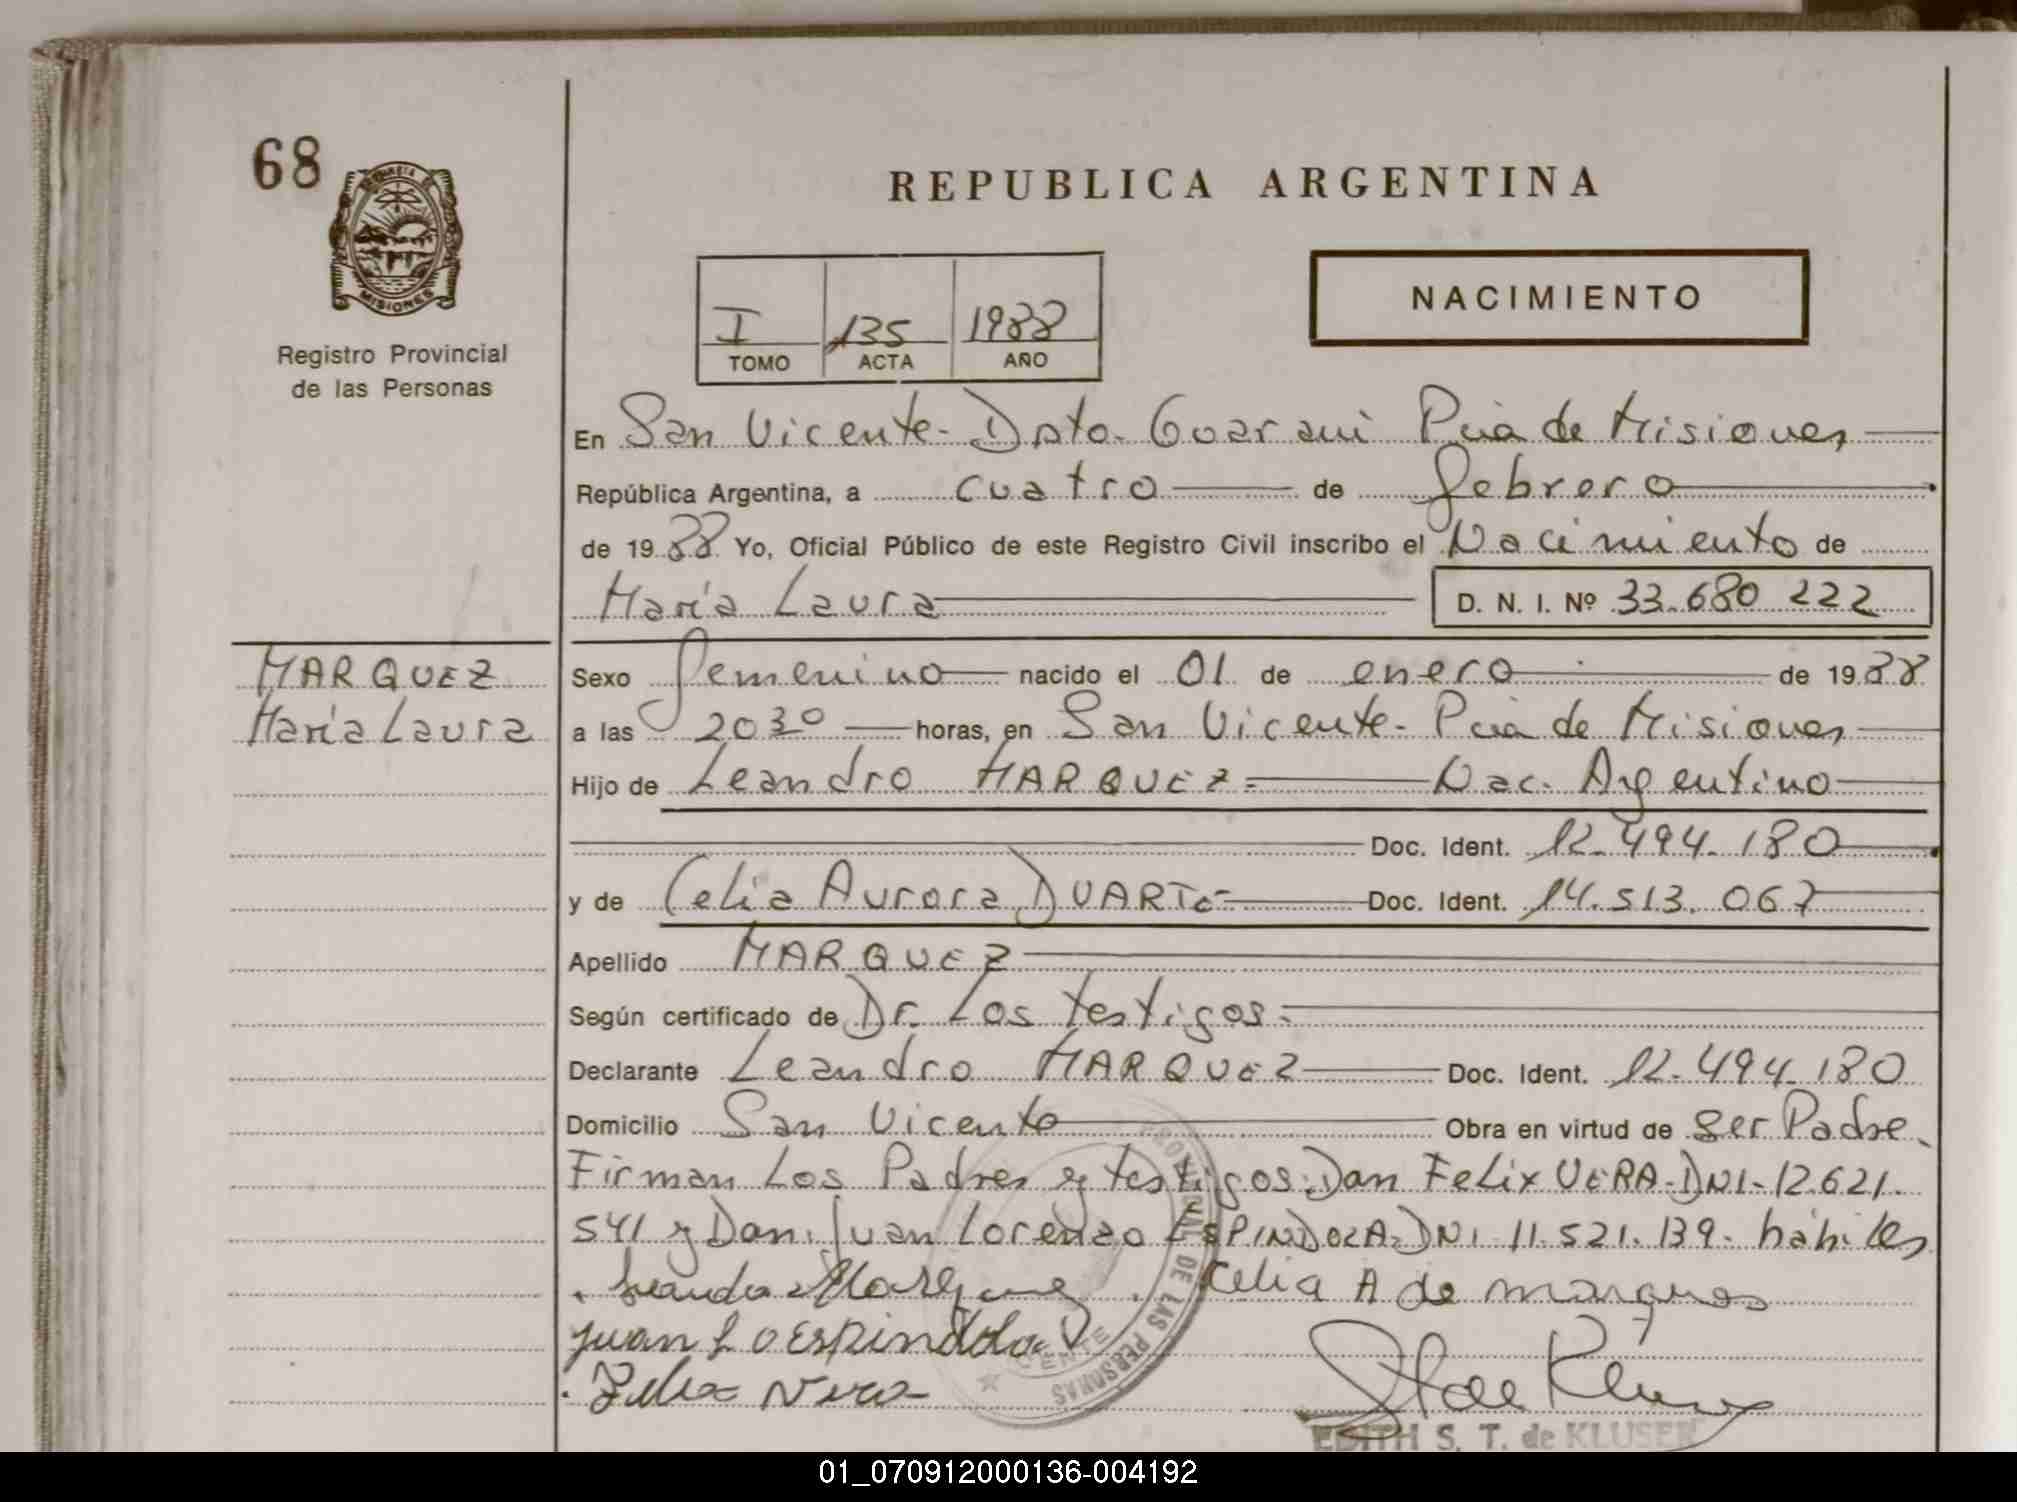 68
MISIONES
Registro Provincial
de las Personas
REPUBLICA ARGENTINA
I 135 1988
TOMO ACTA AÑO
NACIMIENTO
En San Vicente - Dpto. Guarani Pcia de Misiones
República Argentina, a cuatro de febrero
de 1988 Yo, Oficial Público de este Registro Civil inscribo el Nacimiento de
María Laura D. N. I. Nº 33.680 222
MARQUEZ
María Laura
Sexo femenino nacido el 01 de enero de 1988
a las 20 30 horas, en San Vicente - Pcia de Misiones
Hijo de Leandro MARQUEZ = Nac. Argentino
Doc. Ident. 12.494.180
y de Celia Aurora DUARTE - Doc. Ident. 14.513.067
Apellido MARQUEZ
Según certificado de Dr. Los testigos.
Declarante Leandro MARQUEZ Doc. Ident. 12.494.180
Domicilio San Vicente Obra en virtud de ser Padre.
Firman Los Padres y testigos: Don Felix VERA - DNI - 12.621.
541 y Don. Juan Lorenzo ESPINDOLA - DNI 11.521.139. hábiles
Leandro Marquez Celia A de marques
Juan L o Espindola
Felix Vera
PROVINCIAL DE LAS PERSONAS
EDITH S. T. de KLUSER
01_070912000136-004192